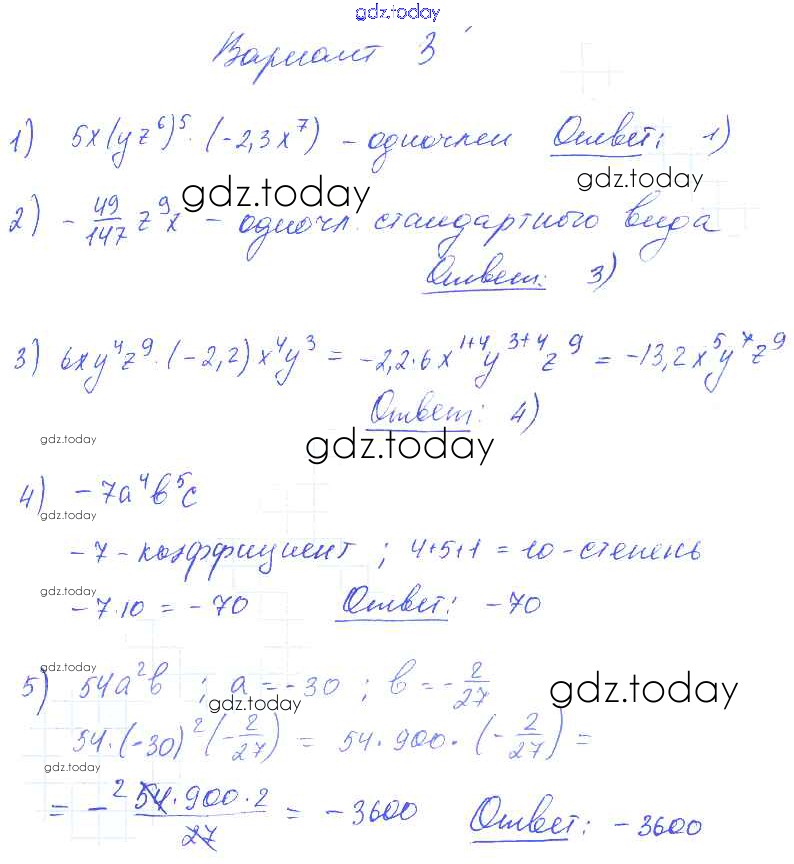 gdz.today
Вариант 3
1) 5x(yz⁶)⁵·(-2,3x⁷) – одночлен Ответ: 1)
gdz.today
gdz.today
2) -49/147 z⁹x – одночл. стандартного вида
Ответ: 3)
3) 6xy⁴z⁹·(-2,2)x⁴y³ = -2,2·6x¹⁺⁴y³⁺⁴z⁹ = -13,2x⁵y⁷z⁹
Ответ: 4)
gdz.today
gdz.today
4) -7a⁴b⁵c
gdz.today
-7 – коэффициент ; 4+5+1 = 10 – степень
gdz.today
-7·10 = -70 Ответ: -70
gdz.today
5) 54a²b ; a = -30 ; b = -2/27
gdz.today
gdz.today
54·(-30)²(-2/27) = 54·900·(-2/27) =
gdz.today
= -² 54·900·2/27 = -3600 Ответ: -3600